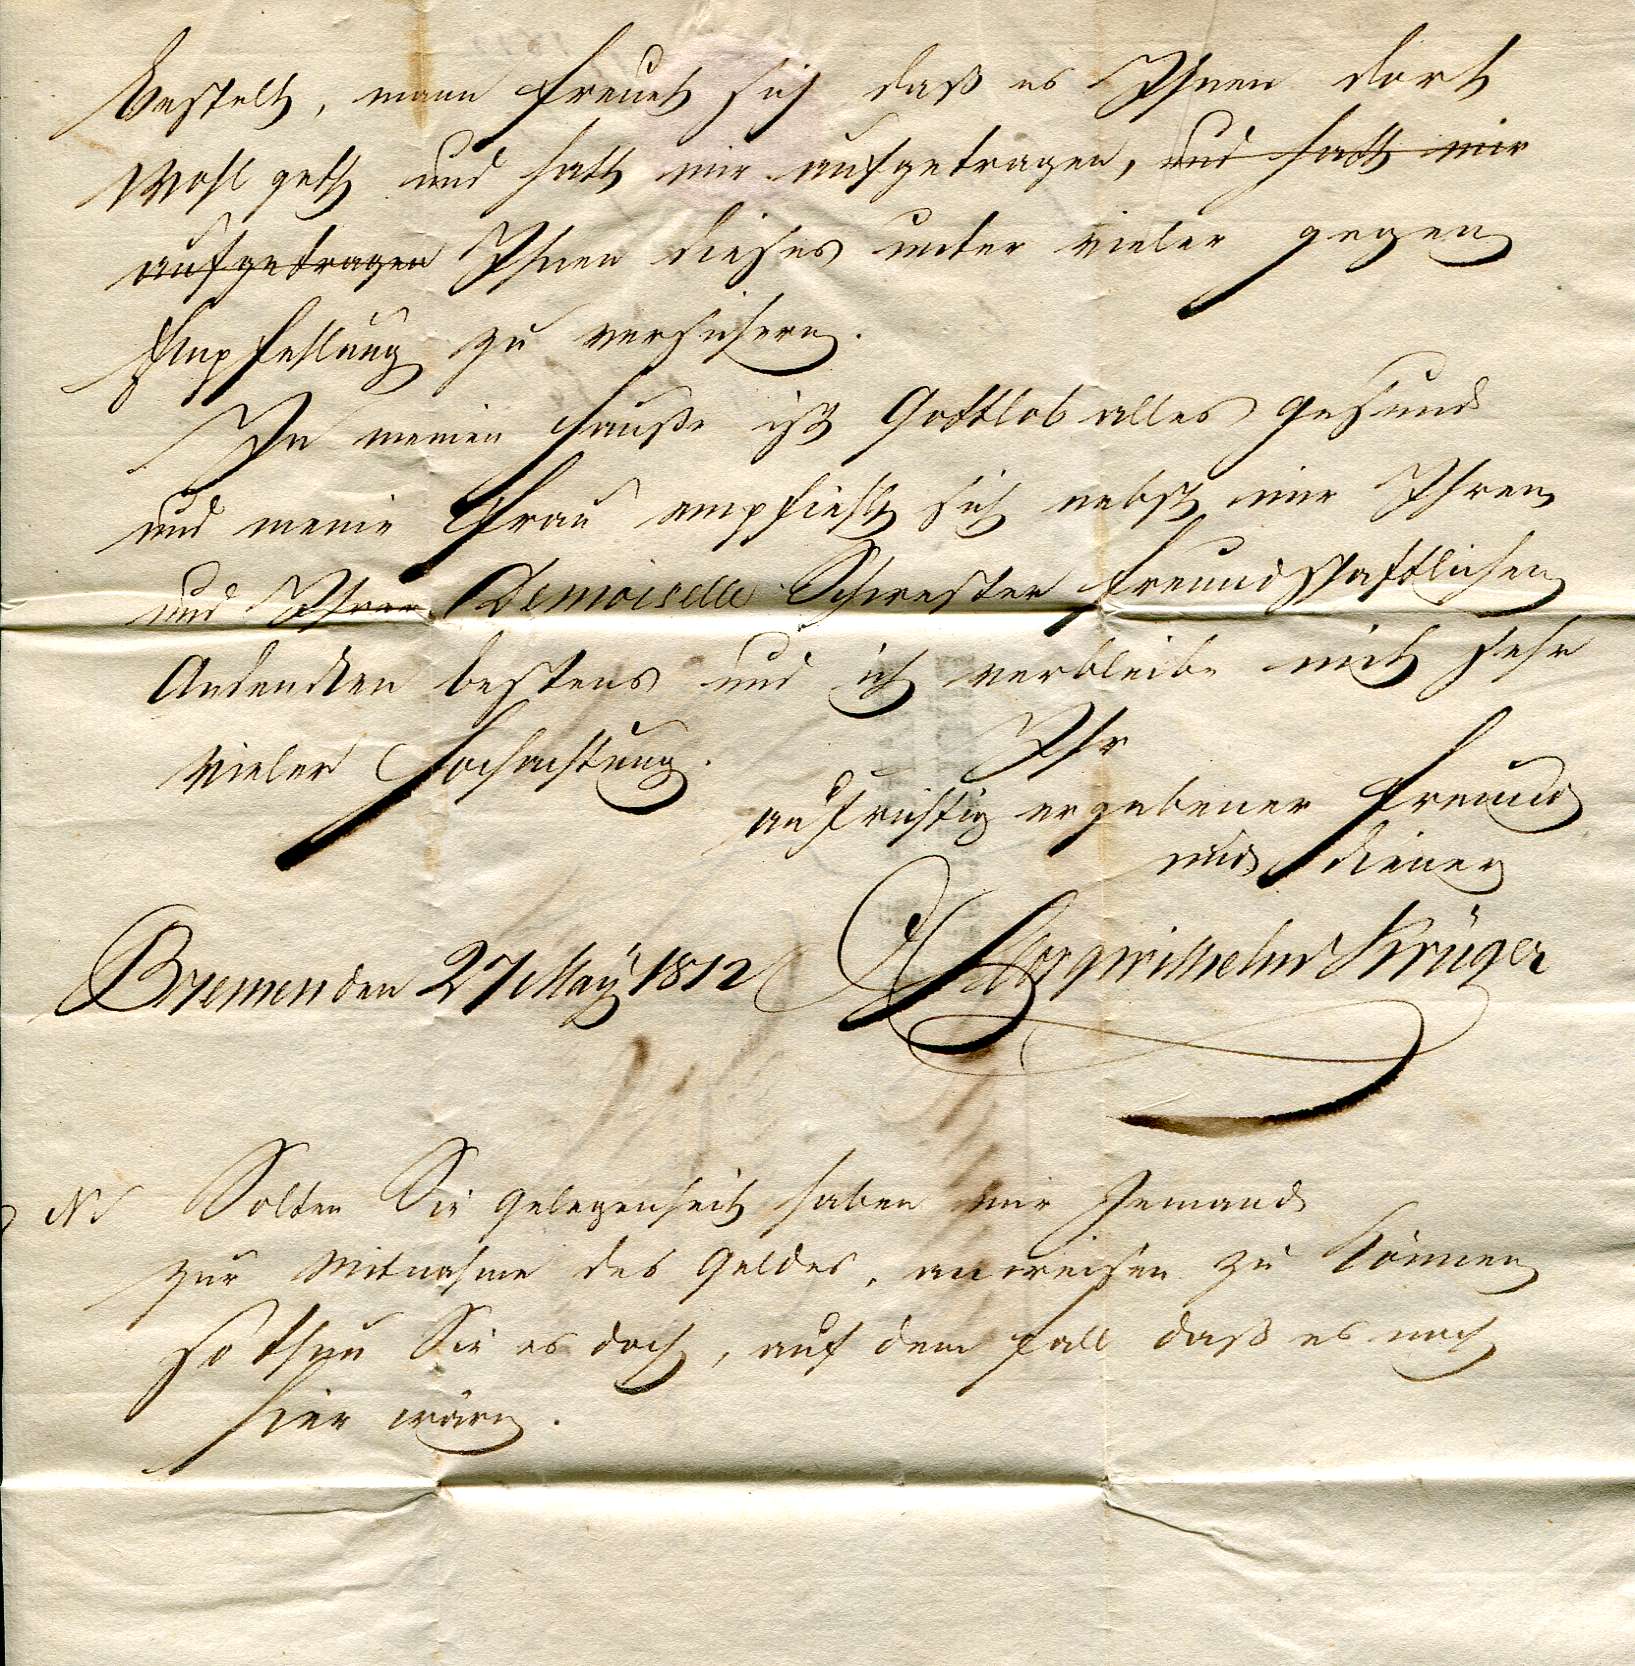 bestelt, mann freuet sich daß es Ihnen dort
Wohl geth und hatt mir aufgetragen, und hatt mir
aufgetragen Ihnen dieses unter vieler gegen
Empfehlung zu versichern.
In meinen Hauße ist Gottlob alles gesund
und meine Frau empfiehlt sich nebst mir Ihren
und Ihrer Demoiselle Schwester freundschaftlichen
Andencken bestens und ich verbleibe mit sehr
vieler Hochachtung.
Ihr
aufrichtig ergebener Freund
und Diener
Bremen den 27 May 1812
Krüger
NS Solten Sie gelegenheit haben mir Jemand
zur Mitnahme des Geldes, anweisen zu können
so thun Sie es doch, auf dem fall daß es noch
hier wäre.